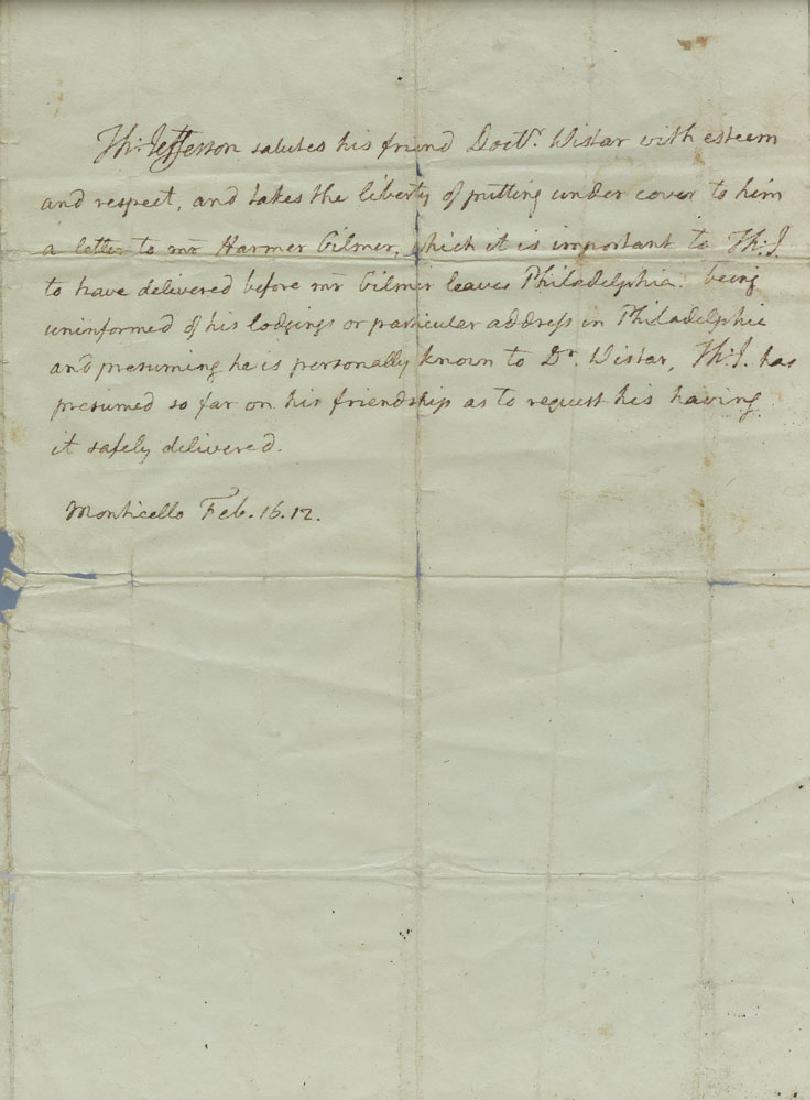 Th: Jefferson salutes his friend Doctr. Wistar with esteem
and respect, and takes the liberty of putting under cover to him
a letter to mr Harmer Gilmer, which it is important to Th: J.
to have delivered before mr Gilmer leaves Philadelphia. being
uninformed of his lodgings or particular address in Philadelphia
and presuming he is personally known to Dr. Wistar, Th: J. has
presumed so far on his friendship as to request his having
it safely delivered.
Monticello Feb. 16. 12.